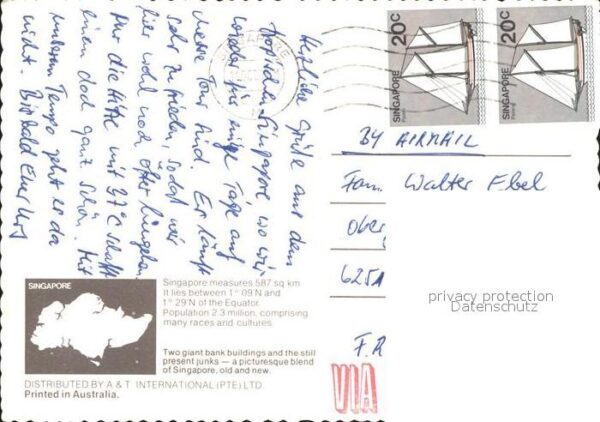 Herzliche Grüße aus dem
schönen Singapore wo wir
wieder für einige Tage auf
Messe Tour sind. Es läuft
sehr zufrieden, sodaß wir
hier wohl noch öfter hingehen
Nur die Hitze mit 37°C schafft
einen doch ganz schön. Mit
unserem Tempo geht es da
nicht. Bis bald Euer
SINGAPORE
20c
SINGAPORE
20c
SINGAPORE
BY AIRMAIL
Fam. Walter Ebel
Ober
625
F.R
VIA
privacy protection
Datenschutz
SINGAPORE
Singapore measures 587 sq km
It lies between 1° 09'N and
1° 29'N of the Equator.
Population 2.3 million, comprising
many races and cultures.
Two giant bank buildings and the still
present junks — a picturesque blend
of Singapore, old and new.
DISTRIBUTED BY A & T INTERNATIONAL (PTE) LTD.
Printed in Australia.